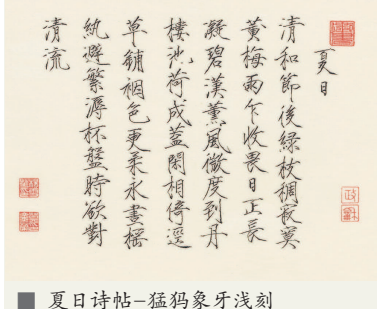 夏日
清和節後綠枝稠寂寞
黃梅雨乍收畏日正長
凝碧漢薰風微度到丹
樓池荷成蓋閑相倚逕
草鋪裀色更柔永晝搖
紈避繁溽杯盤時欲對
清流
政龢
夏日诗帖-猛犸象牙浅刻